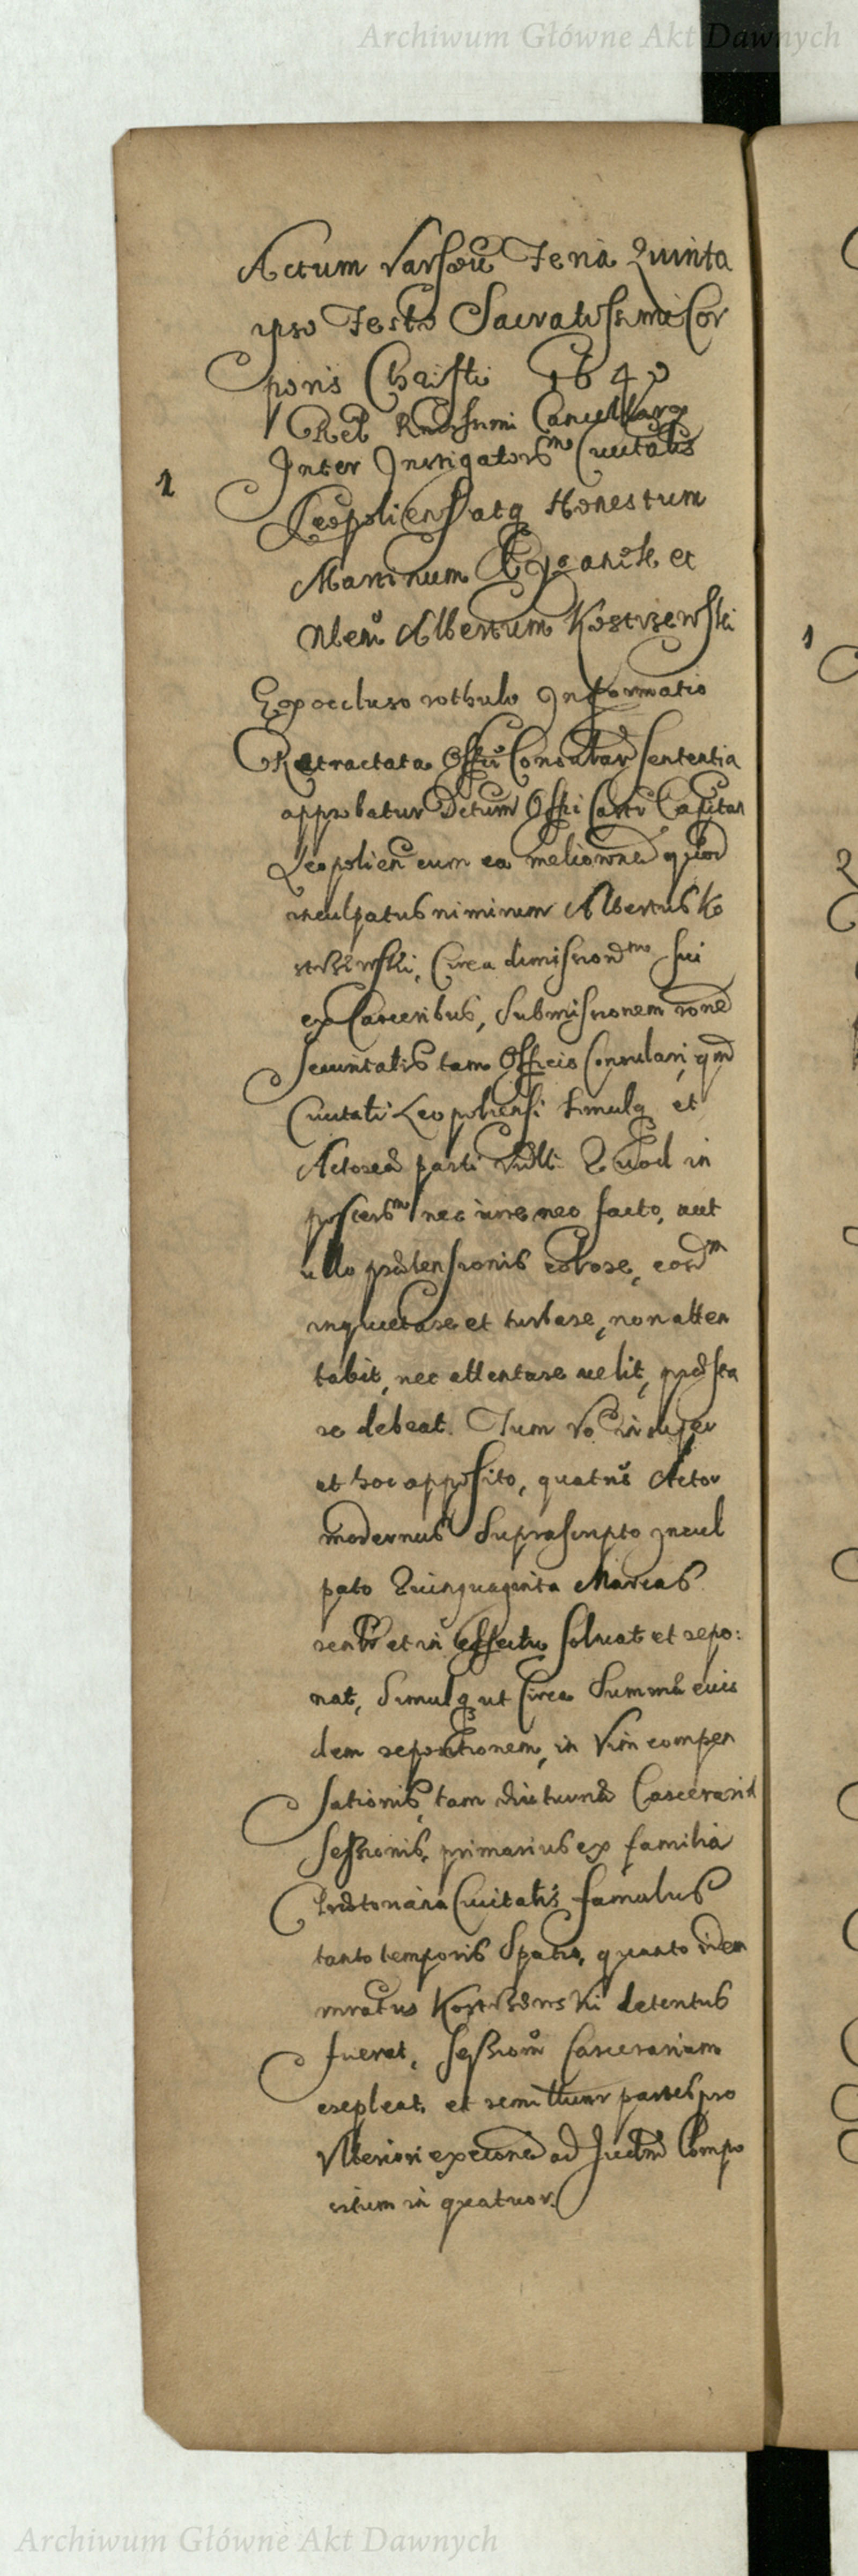 Archiwum Główne Akt Dawnych
Actum Varsoviæ Feria Quinta
ipso Festo Sacratissimi Cor
poris Christi 1640
Rel Rndissimi Cancellarÿ
1
Inter Instigatorem Civitatis
Leopolien atq Honestum
Martinum et
Nlem Albertum Kostrzewski
Ex occluso rothulo Informatio
Retractata Offii Consular Sententia
approbatur Detum Offi Castr Capitan
Leopolien cum ea melione quod
inculpatus nimirum Albertus Ko
strzewski, Circa dimissionem sui
ex Carceribus, Submissionem rone
Securitatis tam Officio Consulari, qm
Civitati Leopoliensi simulq et
Actorea parti Quod in
posterum nec iure nec facto, aut
ullo prætensionis colore, eosdm
inquietare et turbare, non atten
tabit, nec attentare velit, præsta
re debeat. Tum vo insuper
et hoc apposito, quatnus Actor
modernus Suprascripto Incul
pato Quinquaginta Marcas
realr et in effectu solvat et repo:
nat, Simulq ut Circa Summæ eius
dem repositionem, in Vim compen
sationis, tam diuturnæ Carcerariæ
sessionis, primarius ex familia
Civitatis famulus
tanto temporis Spatio, quanto idem
Kostrzewski detentus
fuerat, sessionem Carcerariam
expleat, et remittuntur partes pro
Vlteriori exeone ad Iudm Compo
situm in quatuor.
1
Archiwum Główne Akt Dawnych